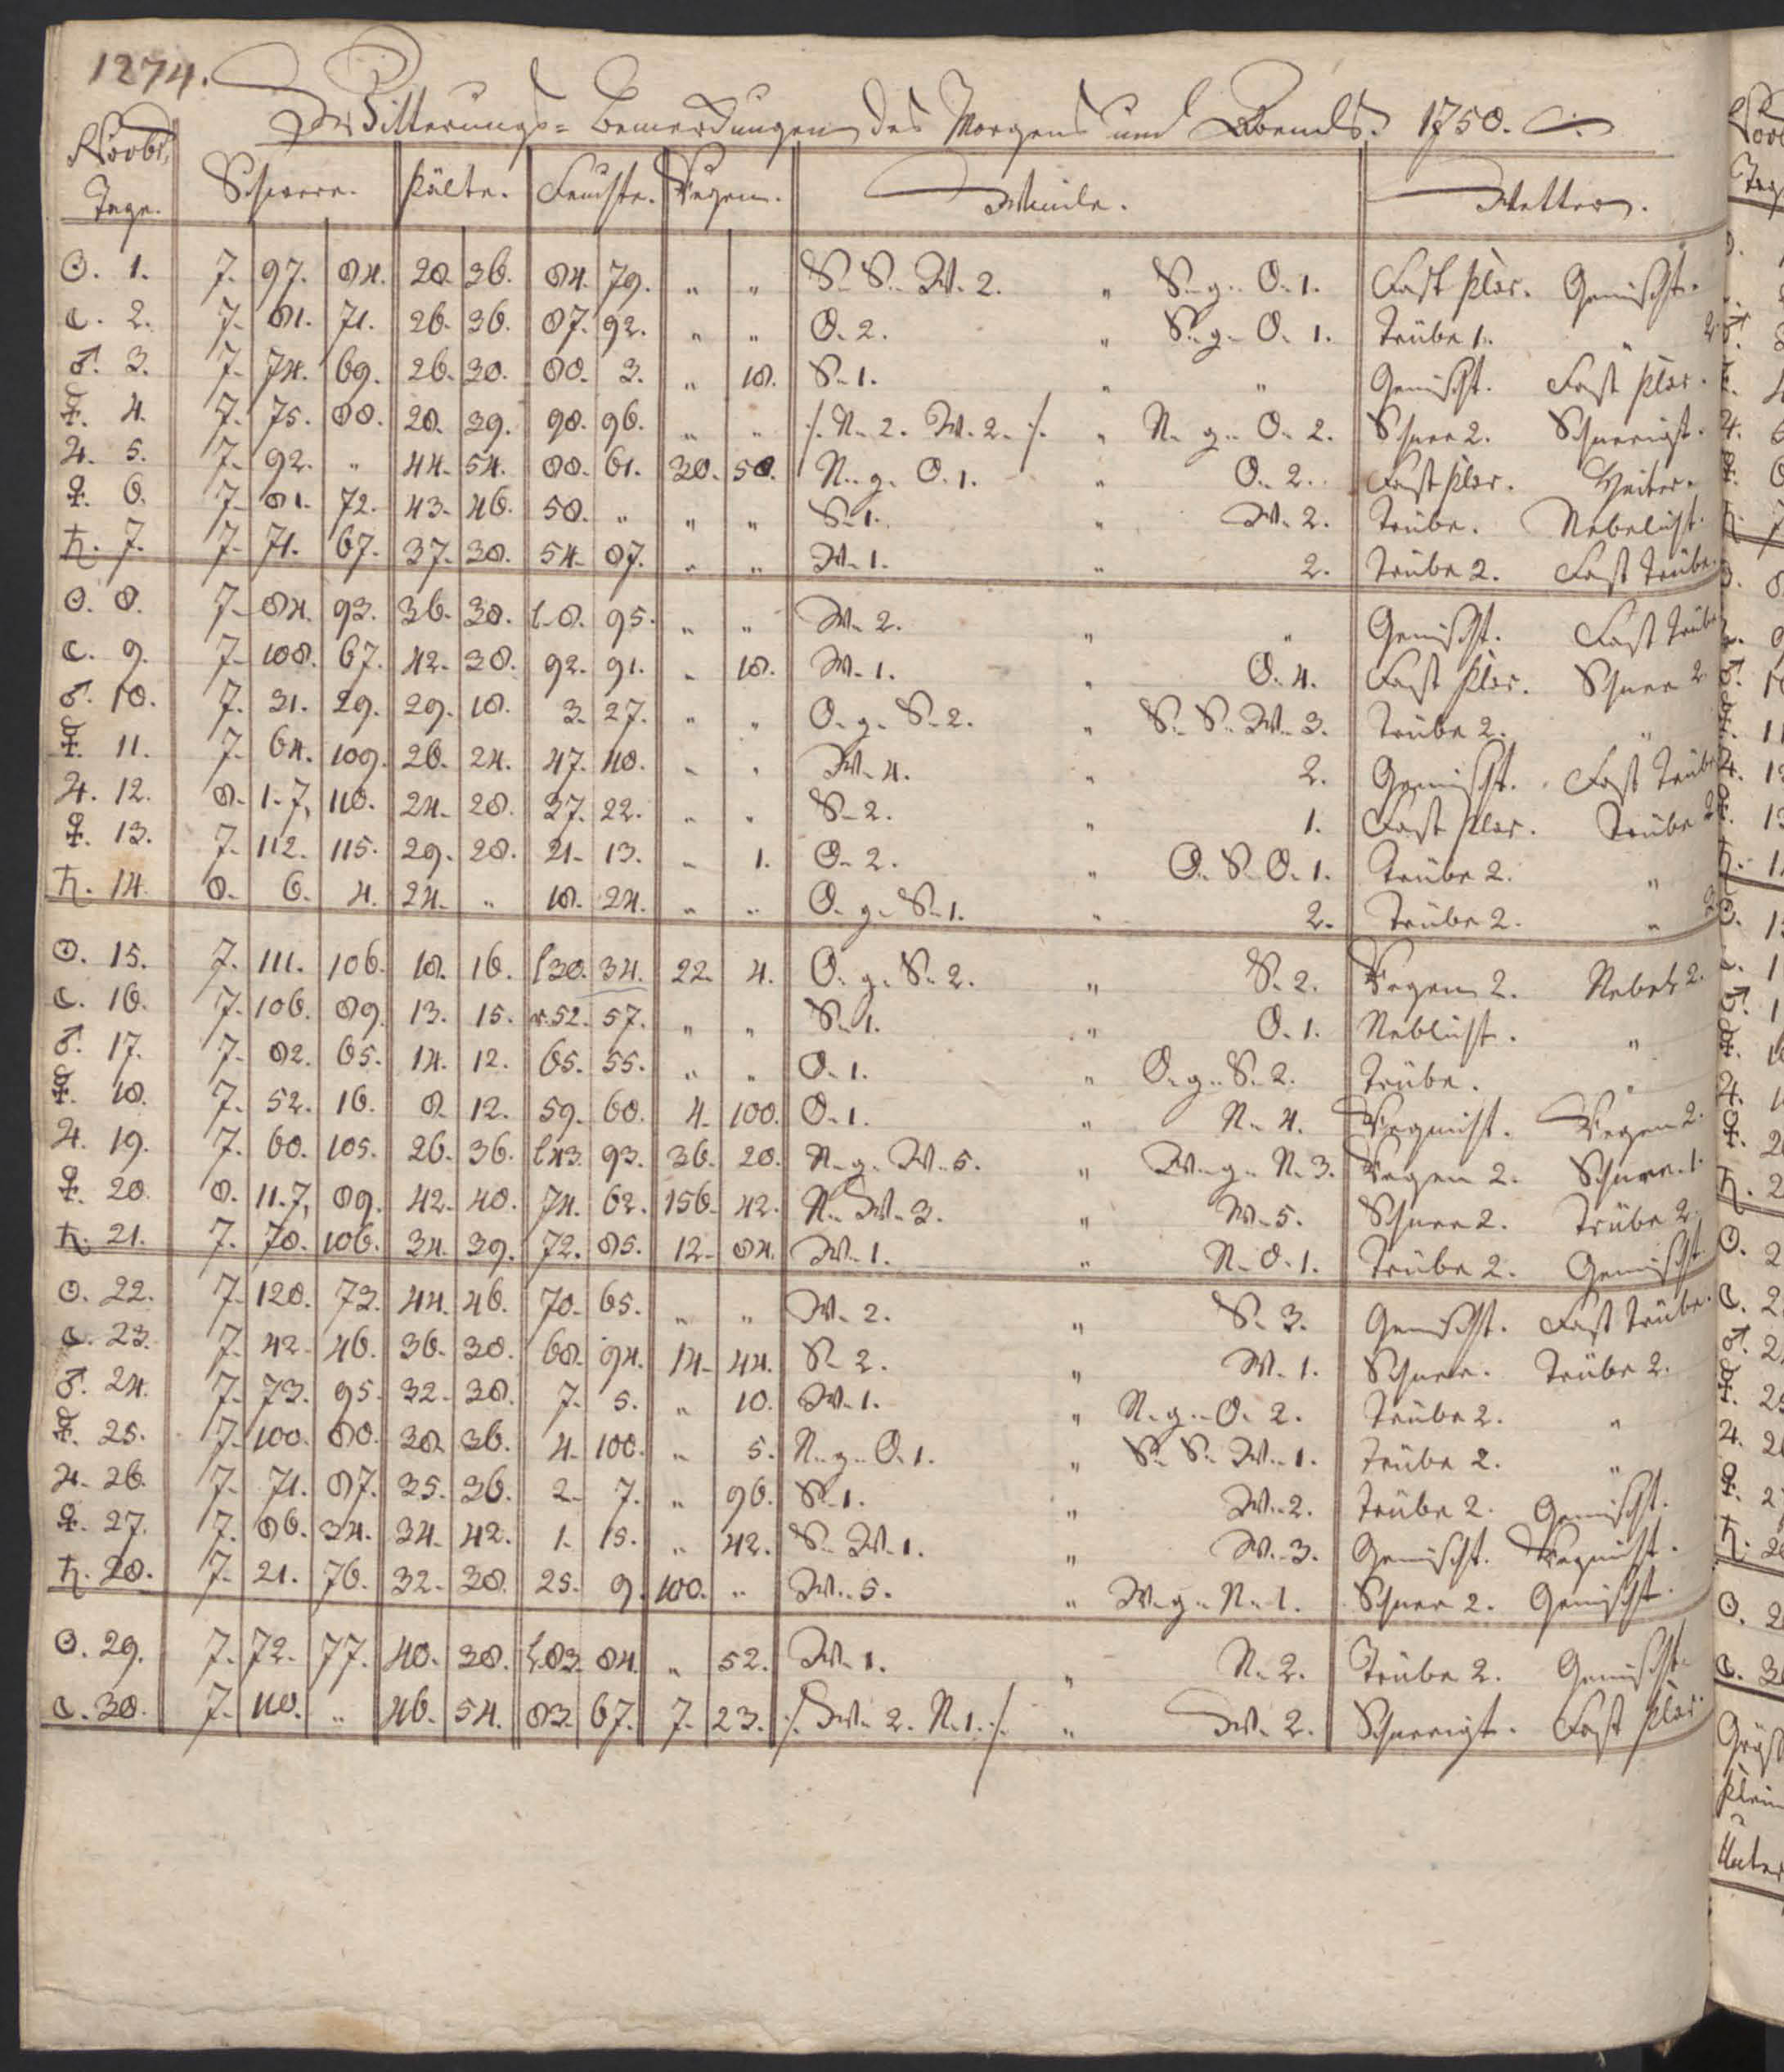 1274. Witterungs-Bemerckungen des Morgens und Abends. 1750.
Novbr. Tage. Schwere. Kälte. Feuchte. Regen. Winde. Wetter.
☉. 1. 7. 97. 84. 28. 36. 84. 79. " " S. S. W. 2. " S. g. O. 1. Fast klar. Gemischt.
☾. 2. 7. 81. 71. 26. 36. 87. 92. " " O. 2. " S. g. O. 1. Trübe 1. " 2.
♂. 3. 7. 74. 69. 26. 30. 80. 3. " 18. S. 1. " " Gemischt. Fast klar.
☿. 4. 7. 75. 88. 28. 39. 98. 96. " " ∕. N. 2. W. 2. ∕. " N. g. O. 2. Schnee 2. Schneeigt.
♃. 5. 7. 92. " 44. 54. 88. 61. 30. 50. N. g. O. 1. " O. 2. Fast klar. Heiter.
♀. 6. 7. 81. 72. 43. 46. 58. " " " S. 1. " W. 2. Trübe. Nebelicht.
♄. 7. 7. 71. 67. 37. 38. 54. 87. " " W. 1. " 2. Trübe 2. Fast trübe.
☉. 8. 7. 84. 93. 36. 38. l. 8. 95. " " W. 2. " " Gemischt. Fast trübe
☾. 9. 7. 108. 67. 42. 38. 92. 91. " 18. W. 1. " O. 4. Fast klar. Schnee 2.
♂. 10. 7. 31. 29. 29. 18. 3. 27. " " O. g. S. 2. " S. S. W. 3. Trübe 2. "
☿. 11. 7. 64. 109. 26. 24. 47. 40. " " W. 4. " 2. Gemischt. Fast trübe
♃. 12. 8. 1. 7, 118. 24. 28. 37. 22. " " S. 2. " 1. Fast klar. Trübe 2.
♀. 13. 7. 112. 115. 29. 28. 21. 13. " 1. O. 2. " O. S. O. 1. Trübe 2. "
♄. 14. 8. 6. 4. 24. " 18. 24. " " O. g. S. 1. " 2. Trübe 2. " 3.
☉. 15. 7. 111. 106. 18. 16. l 30. 34. 22. 4. O. g. S. 2. " S. 2. Regen 2. Nebel 2.
☾. 16. 7. 106. 89. 13. 15. r. 52. 57. " " S. 1. " O. 1. Neblicht. "
♂. 17. 7. 82. 65. 14. 12. 65. 55. " " O. 1. " O. g. S. 2. Trübe. "
☿. 18. 7. 52. 16. 8. 12. 59. 60. 4. 100. O. 1. " N. 4. Regnicht. Regen 2.
♃. 19. 7. 60. 105. 26. 36. l 43. 93. 36. 20. N. g. W. 5. " W. g. N. 3. Regen 2. Schnee. 1.
♀. 20. 8. 11. 7, 89. 42. 40. 74. 62. 156. 42. N. W. 3. " W. 5. Schnee 2. Trübe 2.
♄. 21. 7. 70. 106. 34. 39. 72. 85. 12. 84. W. 1. " N. O. 1. Trübe 2. Gemischt
☉. 22. 7. 120. 73. 44. 46. 70. 65. " " W. 2. " S. 3. Gemischt. Fast trübe.
☾. 23. 7. 42. 46. 36. 30. 68. 94. 14. 44. S. 2. " W. 1. Schnee. Trübe 2.
♂. 24. 7. 73. 95. 32. 38. 7. 5. " 10. W. 1. " N. g. O. 2. Trübe 2. "
☿. 25. 7. 100. 80. 38. 36. 4. 100. " 5. N. g. O. 1. " S. S. W. 1. Trübe 2. "
♃. 26. 7. 71. 87. 35. 36. 2. 7. " 96. S. 1. " W. 2. Trübe 2. Gemischt.
♀. 27. 7. 86. 34. 34. 42. 1. 15. " 42. S. W. 1. " W. 3. Gemischt. Regnicht.
♄. 28. 7. 21. 76. 32. 38. 25. 9. 100. " W. 5. " W. g. N. 1. Schnee 2. Gemischt.
☉. 29. 7. 72. 77. 40. 38. l. 83. 84. " 52. W. 1. " N. 2. Trübe 2. Gemischt.
☾. 30. 7. 110. " 46. 54. 83. 67. 7. 23. ∕. W. 2. N. 1. ∕. " W. 2. Schneeigt. Fast klar.